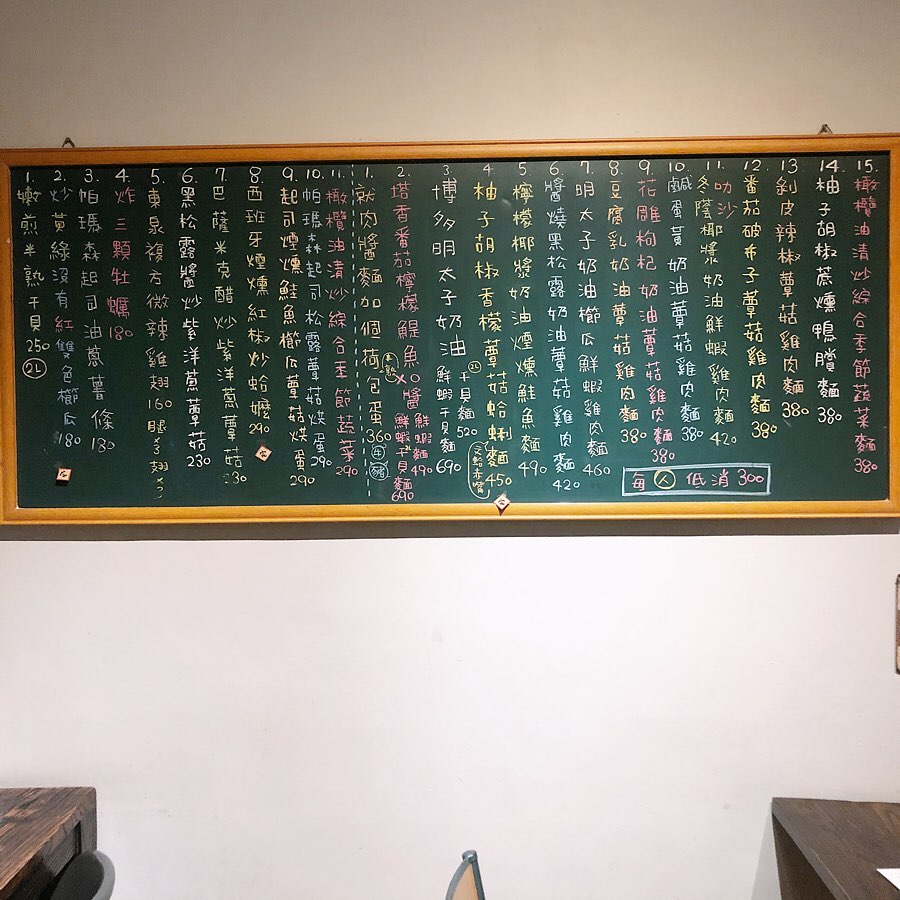 1. 嫩煎半熟干貝 250 2L
2. 炒黃綠沒有紅雙色櫛瓜 180
3. 帕瑪森起司油蔥薯條 180
4. 炸三顆牡蠣 180
5. 東泉複方微辣雞翅 160 腿x3 翅x3
6. 黑松露醬炒紫洋蔥蕈菇 230
7. 巴薩米克醋炒紫洋蔥蕈菇 230
8. 西班牙煙燻紅椒炒蛤蠣 290
9. 起司煙燻鮭魚櫛瓜蕈菇烘蛋 290
10. 帕瑪森起司松露蕈菇烘蛋 290
11. 橄欖油清炒綜合季節蔬菜 290
1. 就肉醬麵加個荷包蛋 360 牛 豬
2. 塔香番茄檸檬鯷魚XO醬 鮮蝦麵 490 鮮蝦干貝麵 690
3. 博多明太子奶油 鮮蝦干貝麵 690
2L 干貝麵 520
4. 柚子胡椒香檬蕈菇蛤蜊麵 450
5. 檸檬椰漿奶油煙燻鮭魚麵 490
6. 醬燒黑松露奶油蕈菇雞肉麵 420
7. 明太子奶油櫛瓜鮮蝦雞肉麵 460
8. 豆腐乳奶油蕈菇雞肉麵 380
9. 花雕枸杞奶油蕈菇雞肉麵 380
10. 鹹蛋黃奶油蕈菇雞肉麵 380
11. 叻沙冬蔭椰漿奶油鮮蝦雞肉麵 420
12. 番茄破布子蕈菇雞肉麵 380
13. 剝皮辣椒蕈菇雞肉麵 380
14. 柚子胡椒蔗燻鴨賞麵 380
15. 橄欖油清炒綜合季節蔬菜麵 380
每人低消300